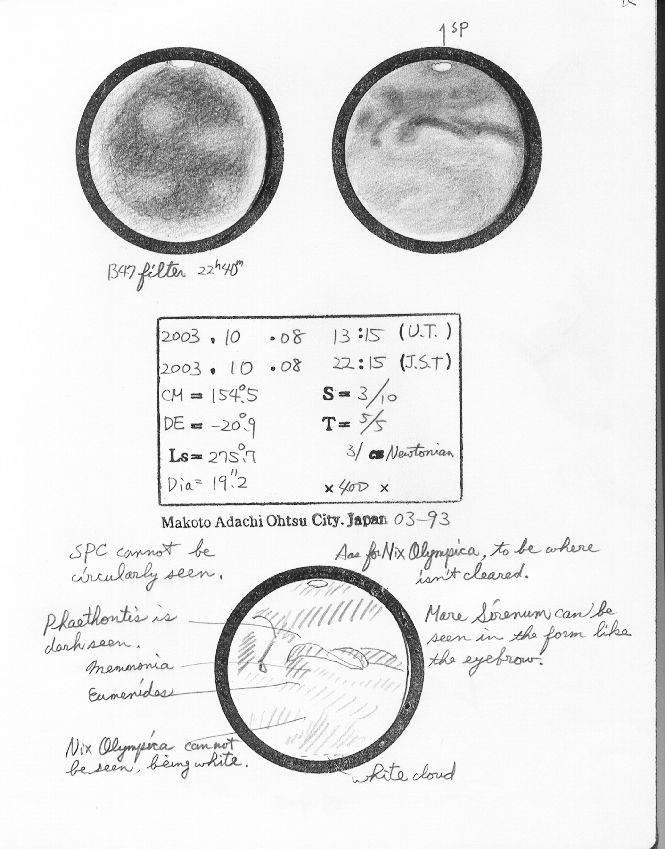 ↑SP
B47 filter 22ʰ40ᵐ
2003 . 10 . 08 13:15 (U.T.)
2003 . 10 . 08 22:15 (J.S.T)
CM = 154°.5 S = 3/10
DE = -20°.9 T = 5/5
Ls = 275°.7 31 Newtonian
Dia = 19".2 × 400 ×
Makoto Adachi Ohtsu City. Japan 03-93
SPC cannot be
circularly seen.
Aas for Nix Olympica, to be where
isn't cleared.
Phaethontis is
dark seen.
Memnonia
Eumenides
Mare Sirenum can be
seen in the form like
the eyebrow.
Nix Olympica cannot
be seen, being white.
white cloud